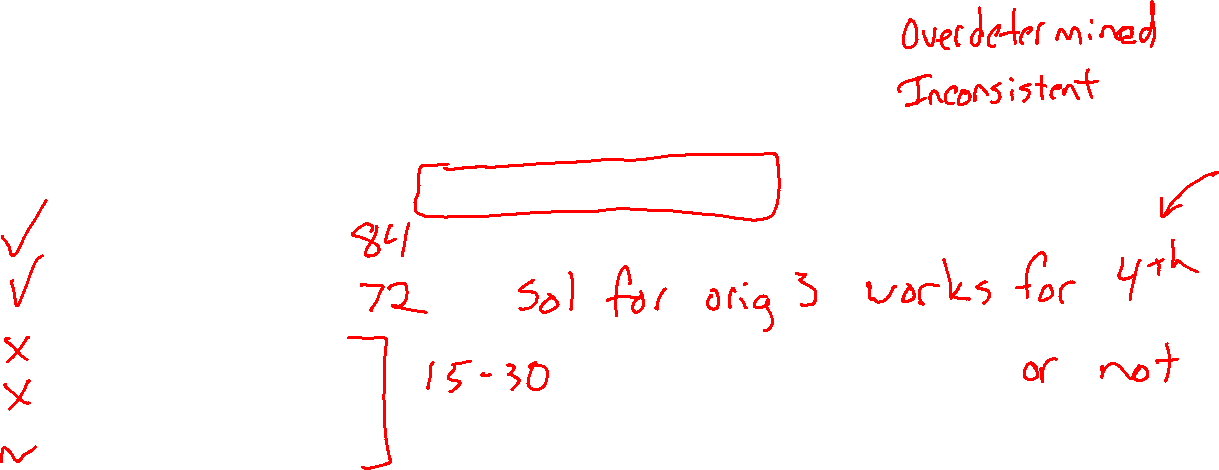 Overdetermined
Inconsistent
✓
84
✓ 72 Sol for orig 3 works for 4th
x 15-30 or not
x
~